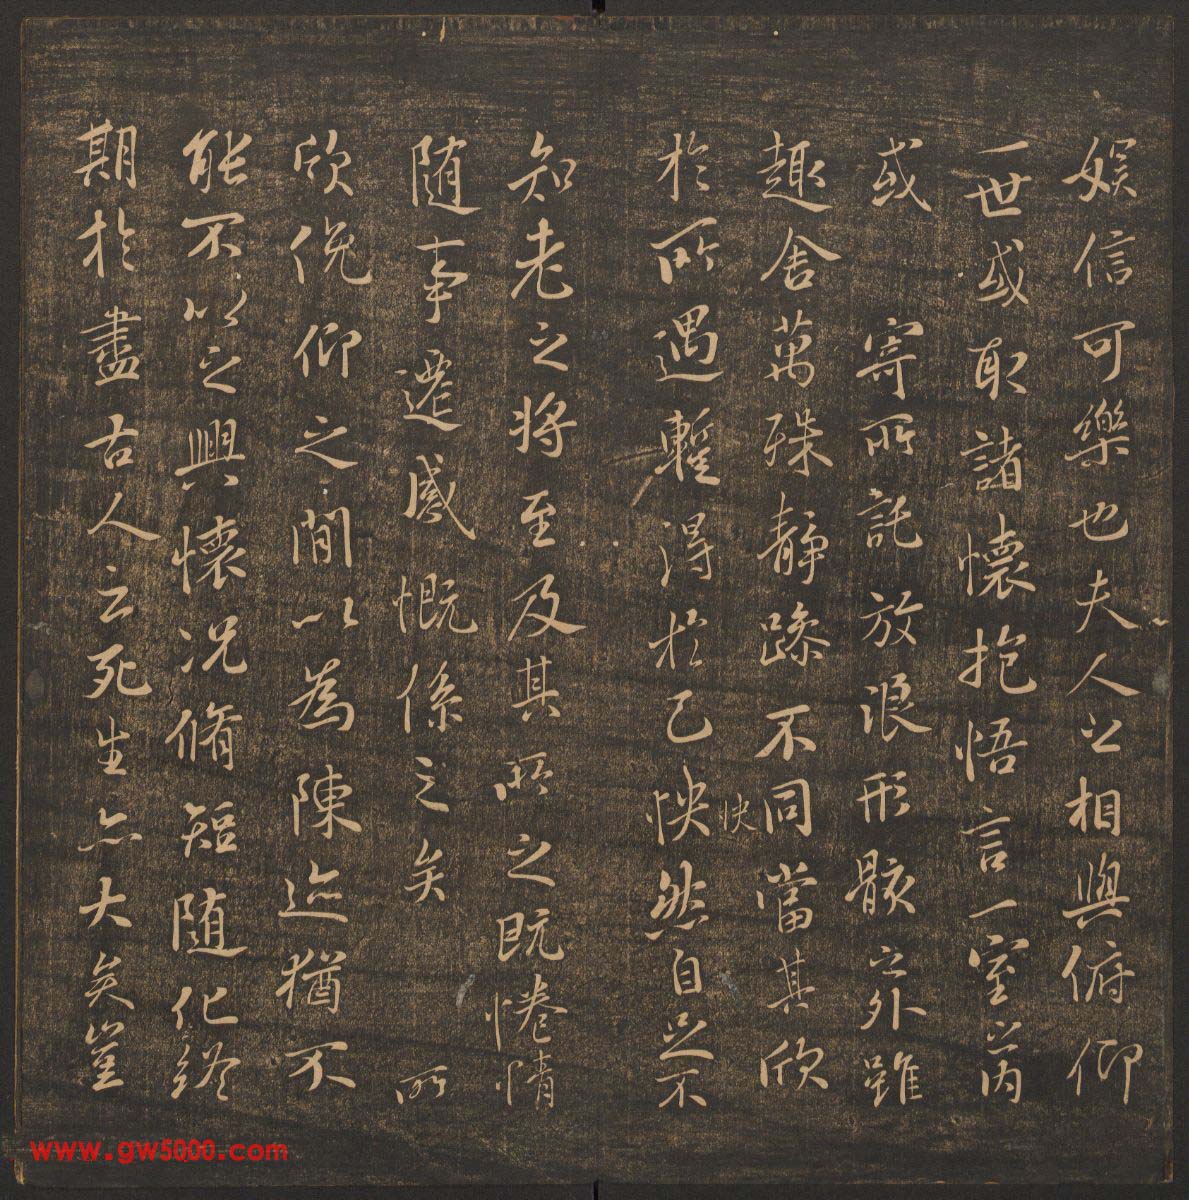 娛信可樂也夫人之相與俯仰
一世或取諸懷抱悟言一室之內
或寄所託放浪形骸之外雖
趣舍萬殊靜躁不同當其欣
於所遇暫得於己怏然自足不
快
知老之將至及其所之既惓情
隨事遷感慨係之矣所
欣俛仰之間以為陳迹猶不
能不以之興懷況脩短隨化終
期於盡古人云死生亦大矣豈
www.gw5000.com